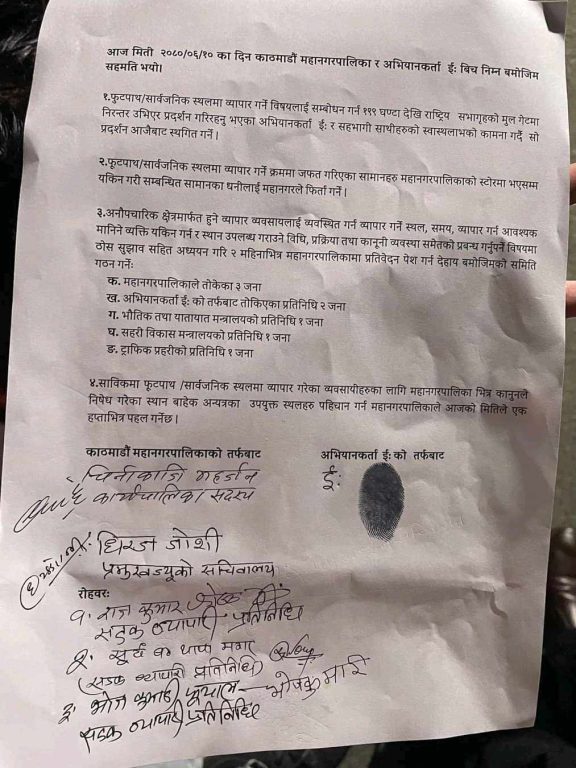 आज मिती २०८०/०६/१० का दिन काठमाडौं महानगरपालिका र अभियानकर्ता ईः बिच निम्न बमोजिम
सहमति भयो।
१.फुटपाथ/सार्वजनिक स्थलमा व्यापार गर्ने विषयलाई सम्बोधन गर्न १९९ घण्टा देखि राष्ट्रिय सभागृहको मुल गेटमा
निरन्तर उभिएर प्रदर्शन गरिरहनु भएका अभियानकर्ता ईः र सहभागी साथीहरुको स्वास्थलाभको कामना गर्दै सो
प्रदर्शन आजैबाट स्थगित गर्ने ।
२.फूटपाथ/सार्वजनिक स्थलमा व्यापार गर्ने क्रममा जफत गरिएका सामानहरु महानगरपालिकाको स्टोरमा भएसम्म
यकिन गरी सम्बन्धित सामानका धनीलाई महानगरले फिर्ता गर्ने ।
३.अनौपचारिक क्षेत्रमार्फत हुने व्यापार व्यवसायलाई व्यवस्थित गर्न व्यापार गर्ने स्थल, समय, व्यापार गर्न आवश्यक
मानिने व्यक्ति यकिन गर्न र स्थान उपलब्ध गराउने विधि, प्रक्रिया तथा कानूनी व्यवस्था समेतको प्रबन्ध गर्नुपर्ने विषयमा
ठोस सुझाव सहित अध्ययन गरि २ महिनाभित्र महानगरपालिकामा प्रतिवेदन पेश गर्न देहाय बमोजिमको समिति
गठन गर्नेः
क. महानगरपालिकाले तोकेका ३ जना
ख. अभियानकर्ता ईः को तर्फबाट तोकिएका प्रतिनिधि २ जना
ग. भौतिक तथा यातायात मन्त्रालयको प्रतिनिधि १ जना
घ. सहरी विकास मन्त्रालयको प्रतिनिधि १ जना
ङ. ट्राफिक प्रहरीको प्रतिनिधि १ जना
४.साविकमा फूटपाथ /सार्वजनिक स्थलमा व्यापार गरेका व्यवसायीहरुका लागि महानगरपालिका भित्र कानूनले
निषेध गरेका स्थान बाहेक अन्यत्रका उपयुक्त स्थलहरु पहिचान गर्न महानगरपालिकाले आजको मितिले एक
हप्ताभित्र पहल गर्नेछ ।
काठमाडौं महानगरपालिकाको तर्फबाट
चिनीकाजि महर्जन
कार्यपालिका सदस्य
धिरज जोशी
प्रमुखज्यूको सचिवालय
अभियानकर्ता ईः को तर्फबाट
ईः
रोहवरः
१. राज कुमार
सडक व्यापारी प्रतिनिधि
२. सूर्य ब थापा मगर
(सडक व्यापारी प्रतिनिधि)
३. भोज कुमारी भोजकुमारी
सडक व्यापारी प्रतिनिधि